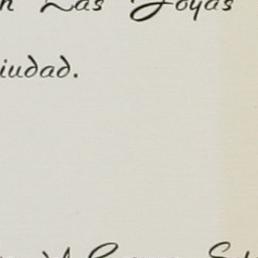 n Las Joyas
iudad.